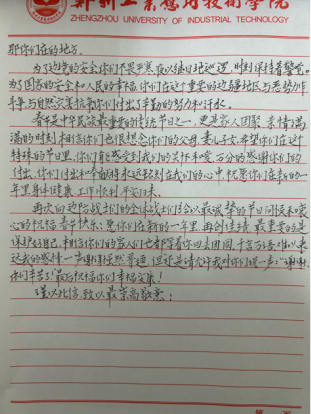 郑州工业应用技术学院
ZHENGZHOU UNIVERSITY OF INDUSTRIAL TECHNOLOGY
那你们在的地方.
为了边境的安全你们不畏严寒夜以继日地巡逻,时刻保持着警觉.
为了国家的安全和人民的幸福.你们在这个重要的边疆地区与恶势力作
斗争,与自然灾害抗衡你们付出了辛勤的努力和汗水。
春节是中华民族最重要的传统节日之一,更是家人团聚,亲情满
满的时刻相信你们也很想念你们的父母,妻儿子女,希望你们在这个
特殊的节日里,你们能感受到我们的关怀和爱,万分的感谢你们的
付出,你们付出的一切都将永远铭刻在我们的心中祝愿你们在新的一
年里身体健康,工作顺利,平安归来.
再次向边防战士们的全体战士们给以最诚挚的节日问候和衷
心的祝福春节快乐!愿你们在新的一年里,再创佳绩,最重要的是
保护好自己,相信你们的家人们也都等着你回去团圆,千言万语难以表
达我的感情一声谢谢虽然普通,但还是请允许我对你们说一声:"谢谢,
你们辛苦了!最后祝福你们幸福安康!
谨以此信,致以最崇高敬意!